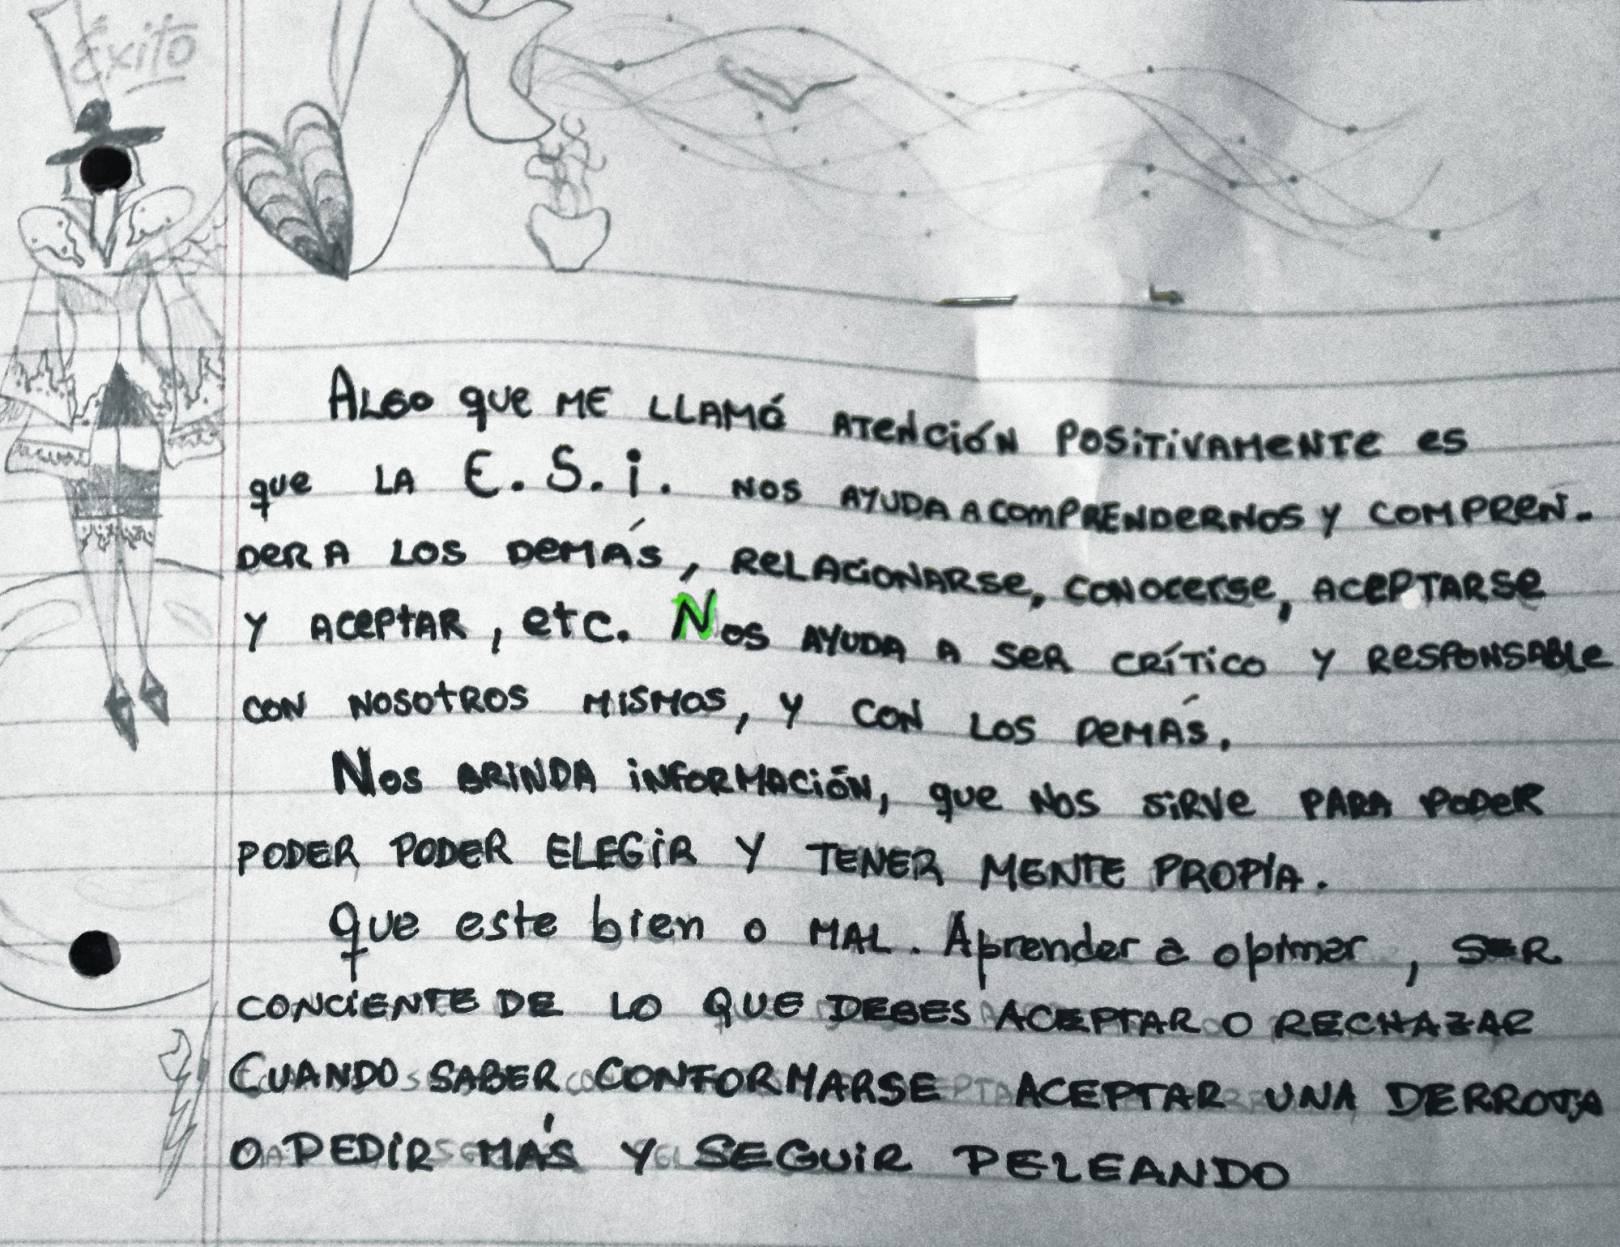 Éxito
ALGO que ME LLAMÓ ATENCIÓN POSITIVAMENTE es
que LA E.S.i. NOS AYUDA A COMPRENDERNOS Y COMPREN-
DER A LOS DEMÁS, RELACIONARSE, CONOCERSE, ACEPTARSE
Y ACEPTAR, etc. NOS AYUDA A SER CRÍTICO Y RESPONSABLE
CON NOSOTROS MISMOS, Y CON LOS DEMÁS.
NOS BRINDA INFORMACIÓN, que NOS SIRVE PARA PODER
PODER PODER ELEGIR Y TENER MENTE PROPIA.
Que este bien o MAL. Aprender a opinar, SER
CONCIENTE DE LO QUE DEBES ACEPTAR O RECHAZAR
CUANDO SABER CONFORMARSE ACEPTAR UNA DERROTA
O PEDIR MÁS Y SEGUIR PELEANDO